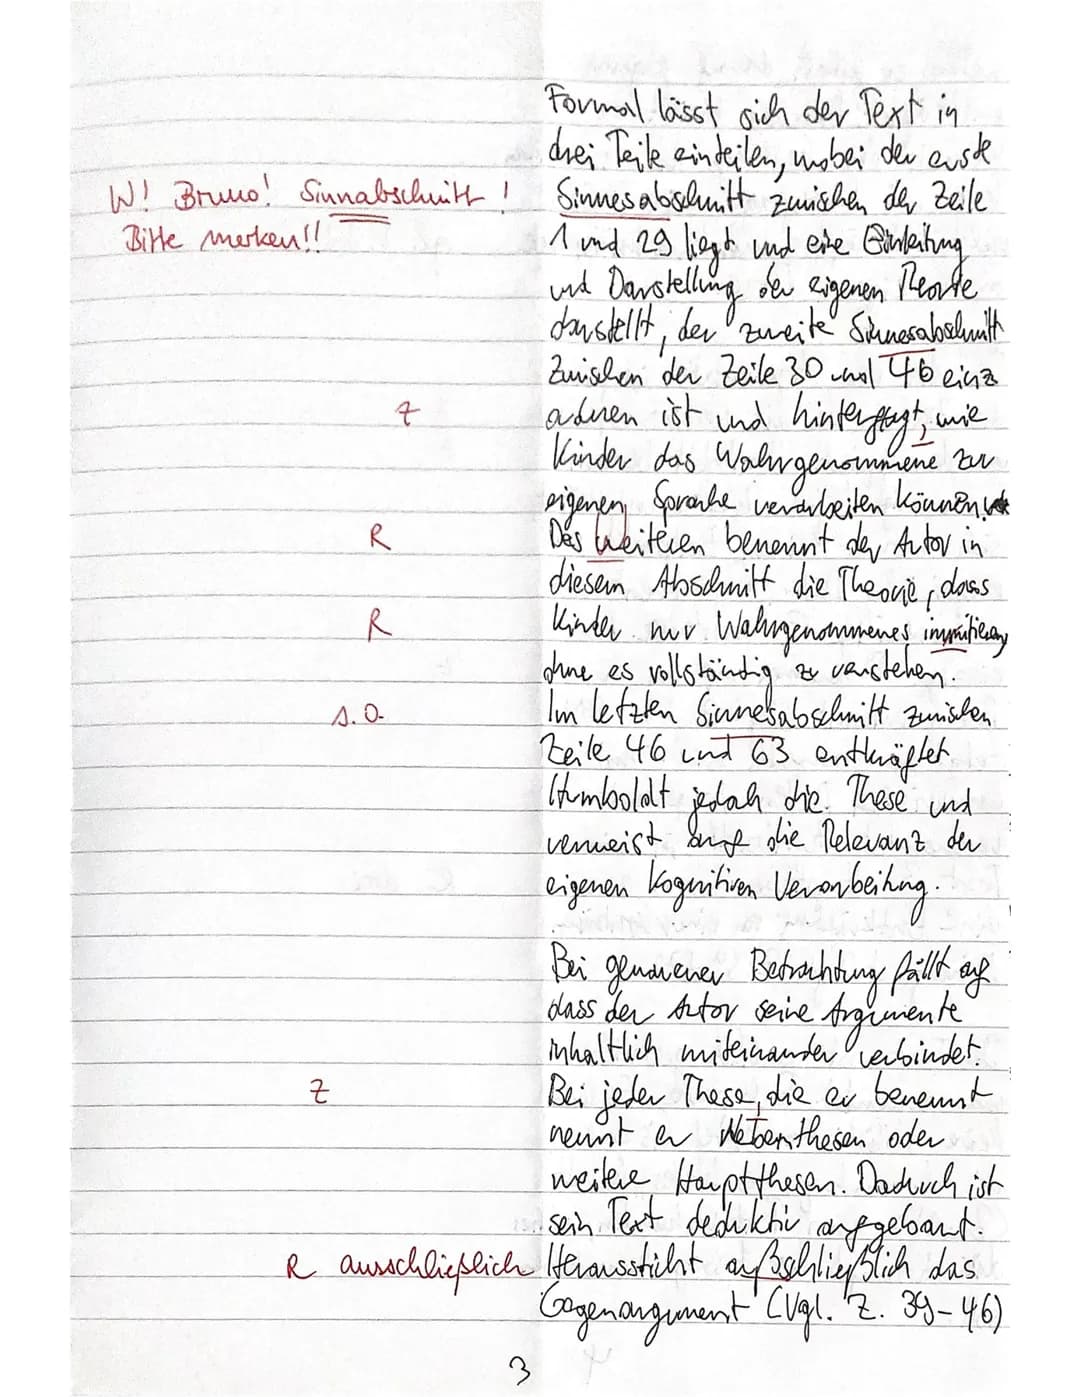 Formal lässt sich der Text in
drei Teile einteilen, wobei der erste
W! Bruno! Sinnabschnitt! Sinnesabschnitt zwischen der Zeile
Bitte merken!! 1 und 29 liegt und eine Einleitung
und Darstellung der eigenen Theorie
darstellt, der zweite Sinnesabschnitt
Zwischen der Zeile 30 und 46 einz
Z aordnen ist und hinterfragt, wie
Kinder das Wahrgenommene zur
eigenen Sprache verarbeiten können.
R Des weiteren benennt der Autor in
diesem Abschnitt die Theorie, dass
R Kinder nur Wahrgenommenes immitieren,
ohne es vollständig zu verstehen.
s. o. Im letzten Sinnesabschnitt zwischen
Zeile 46 und 63 entkräftet
Humboldt jedoch die These und
verweist auf die Relevanz der
eigenen kognitiven Verarbeitung.
Bei genauener Betrachtung fällt auf
dass der Autor seine Argumente
inhaltlich miteinander verbindet.
Z Bei jeder These, die er benennt
nennt er Nebenthesen oder
weitere Hauptthesen. Dadurch ist
sein Text deduktiv aufgebaut.
R ausschließlich Heraussticht außschließlich das
Gegenargument (Vgl. Z. 39-46)
3